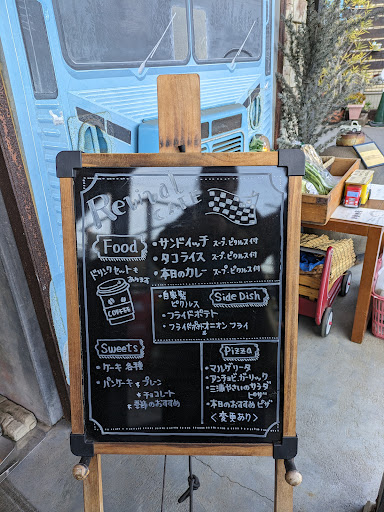 Revival
CAFE
Food
・サンドイッチ スープ、ピクルス付
・タコライス スープ、ピクルス付
・本日のカレー スープ、ピクルス付
ドリンクセットも
あります
COFFEE
・自家製
ピクルス
Side Dish
・フライドポテト
・フライドオニオンフライ
Sweets
・ケーキ各種
・パンケーキ プレーン
チョコレート
季節のおすすめ
Pizza
・マルゲリータ
・アンチョビ ガーリック
・三浦やさいのサラダ
ピザ
・本日のおすすめピザ
<変更あり>